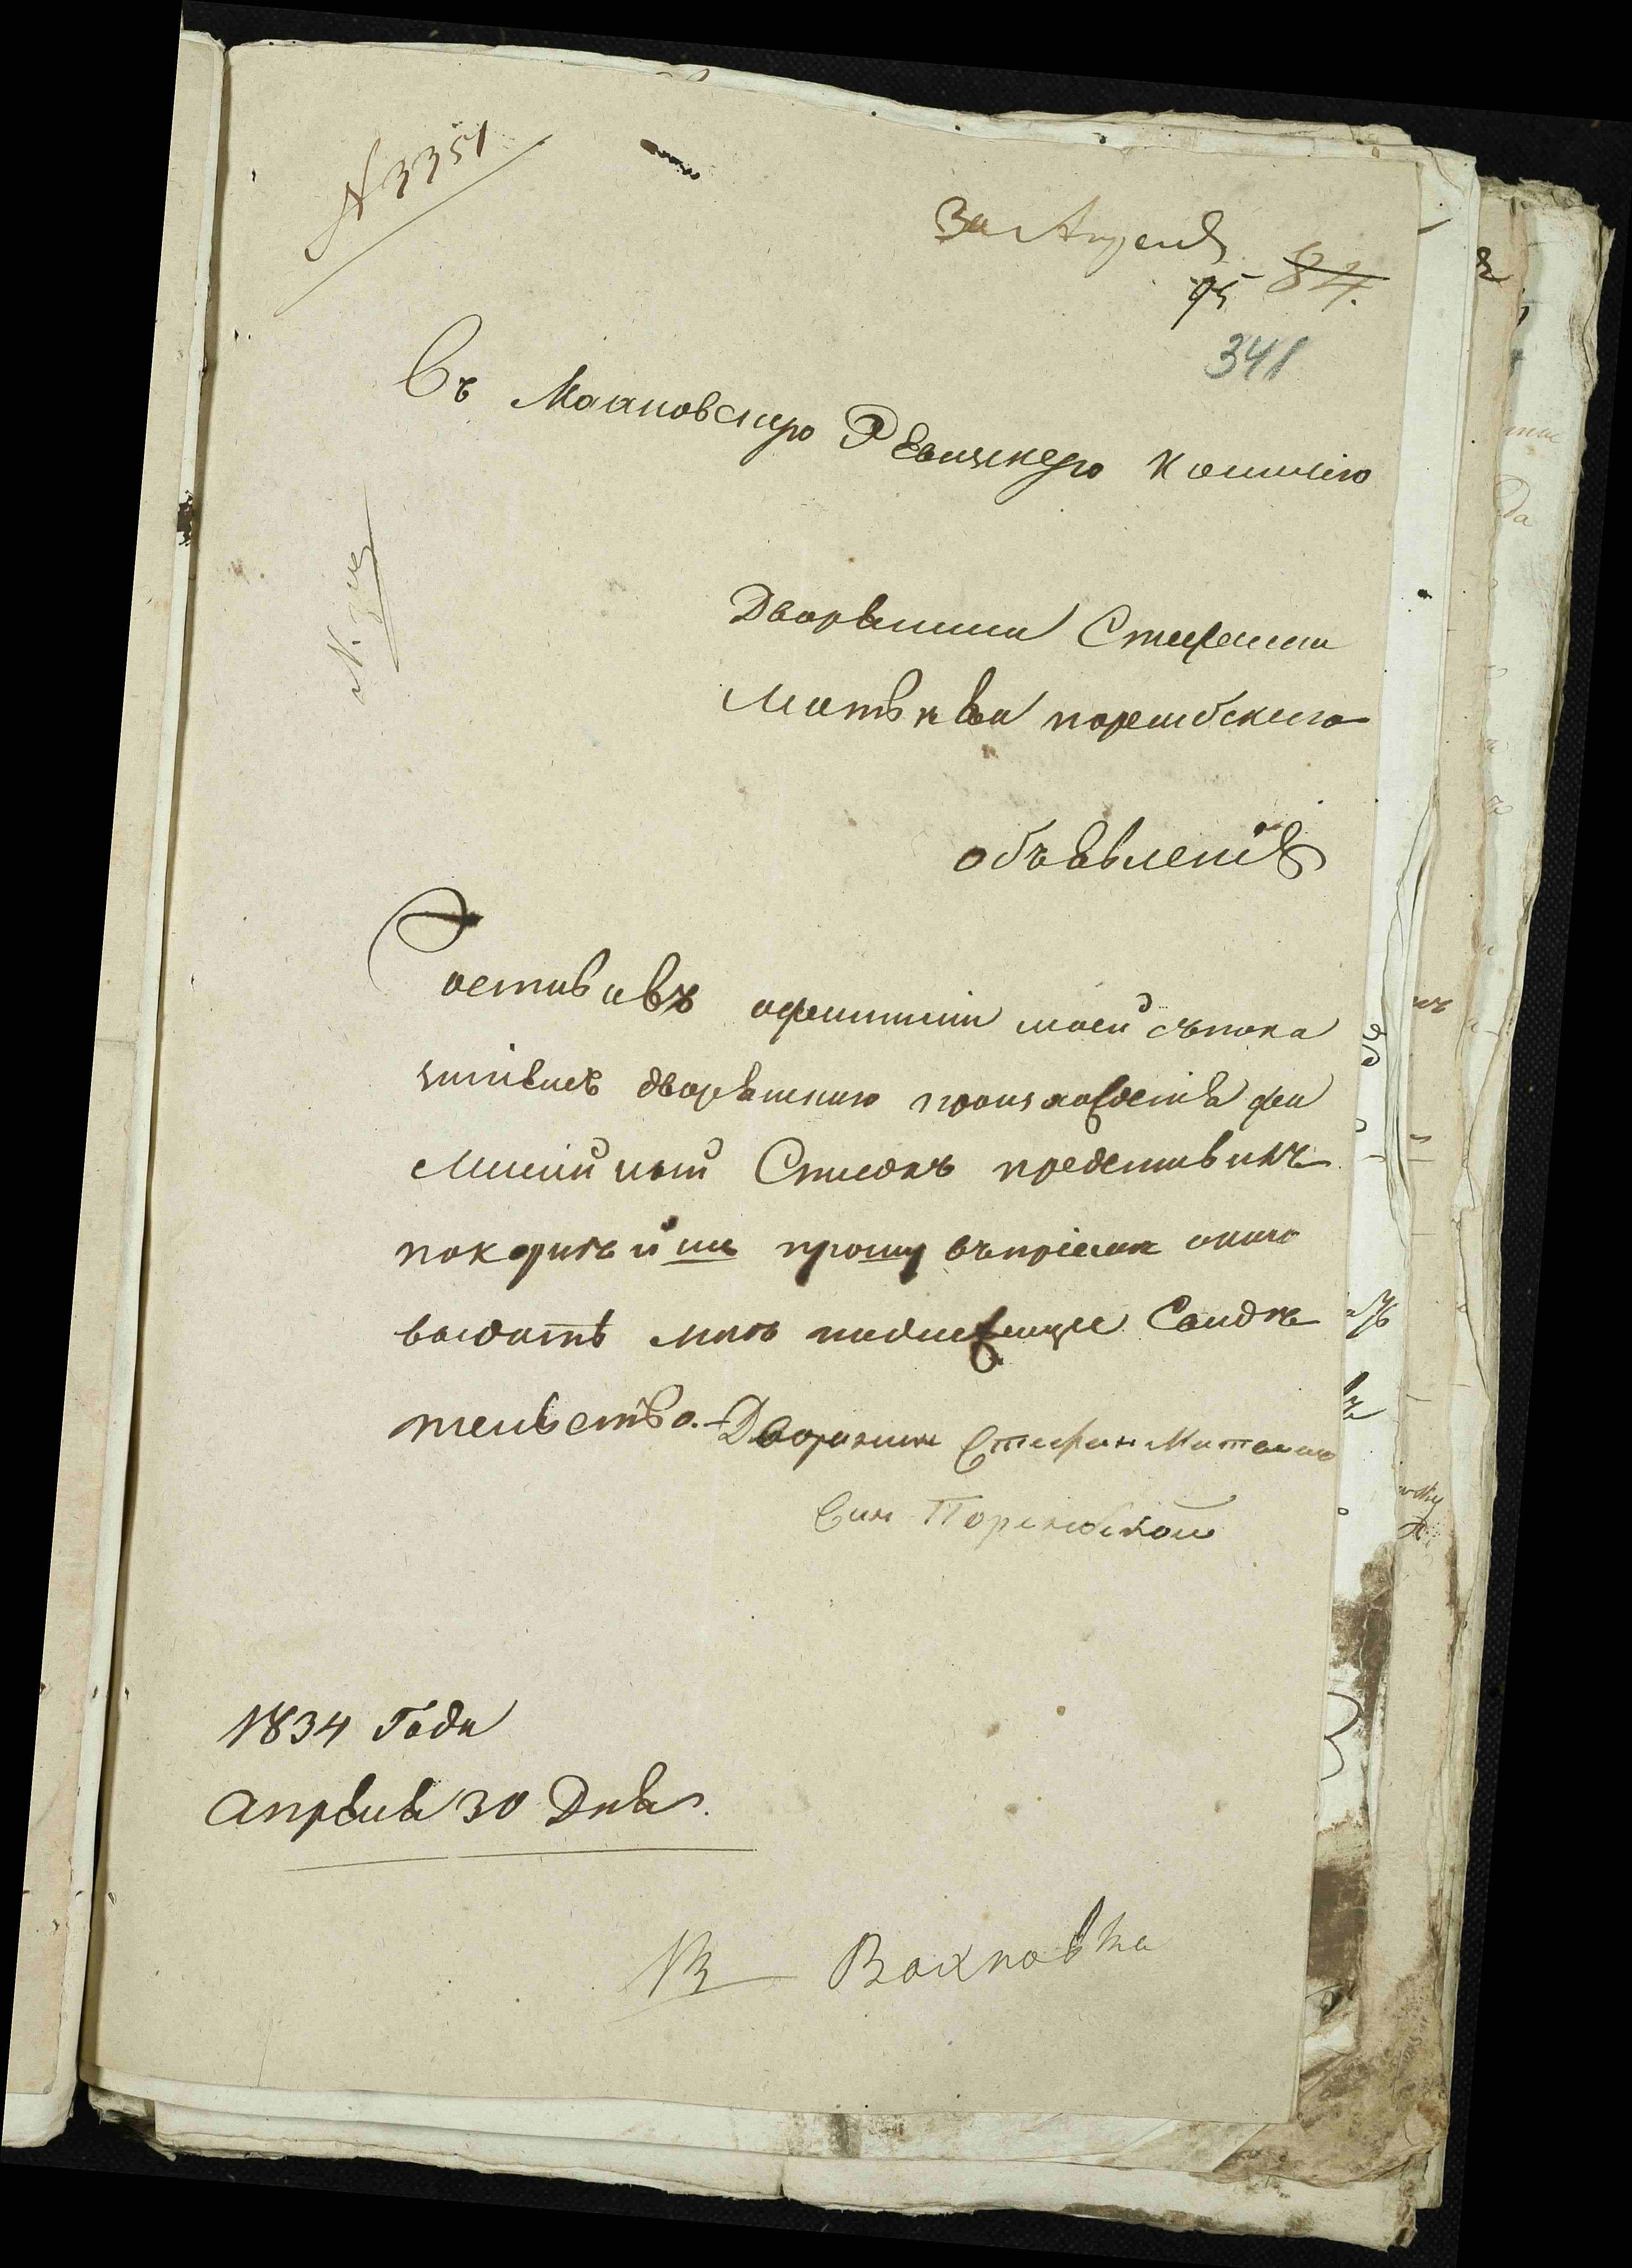 N 3351
30 Апреля
95 84.
341
Въ Махновскую Ревизскую Комисію
Дворянина Стефана
Матвѣева порембскаго
объявленія
Составивъ офамиліи моей съпока
заніемъ дворянскаго происхожденія фа
Милійный Списокъ представляя
покорнѣйше прошу въпріемѣ онаго
выдать мнѣ надлежащее Свидѣ
тельство. Дворянин Стефан Матвеев
Син Порембской
1834 Года
апреля 30 Дня.
Вахновка